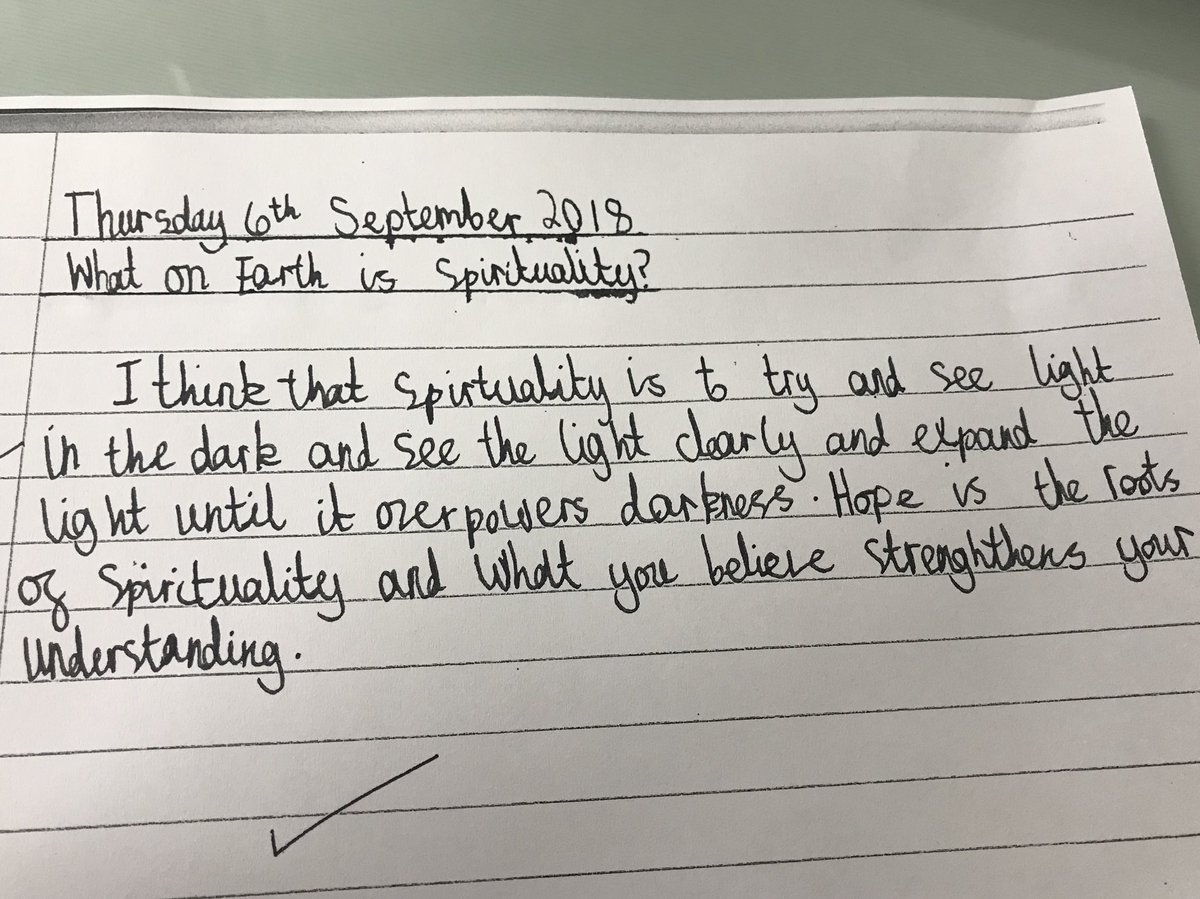 Thursday 6th September 2018
What on Earth is Spirituality?
I think that Spirtuality is to try and see light
in the dark and see the light clearly and expand the
light until it overpowers darkness. Hope is the roots
of Spirituality and What you believe strenghthens your
understanding.